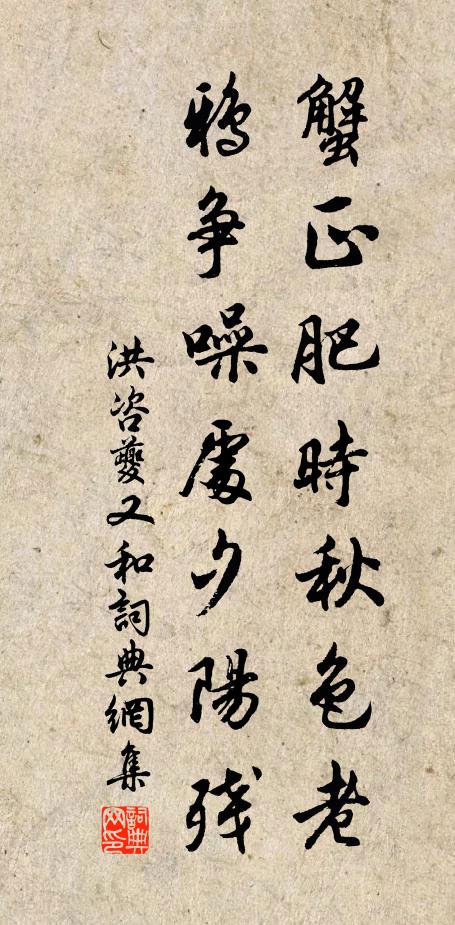 蟹正肥時秋色老
鴉爭噪處夕陽殘
洪咨夔又和詞典網集
詞典網印